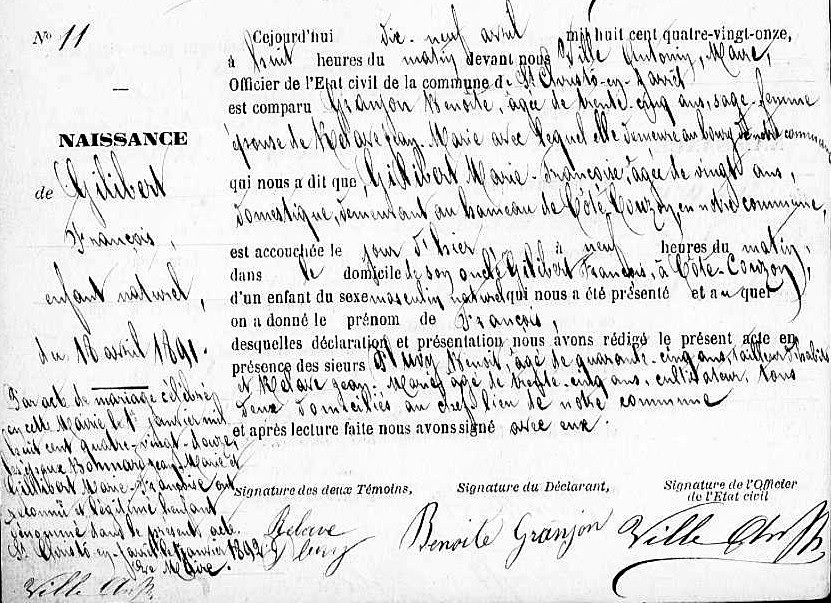 N° 11
NAISSANCE
de Gilibert
François,
enfant naturel,
du 18 avril 1891.
Par acte de mariage célébré
en cette Mairie le 1er janvier mil
huit cent quatre-vingt-douze,
les époux Bonnard Jean-Marie et
Gillibert Marie-Françoise ont
reconnu et légitimé l'enfant
dénommé dans le présent acte.
St Christô-en-Jarret le janvier 1892
Le Maire.
Ville
Cejourd'hui dix-neuf avril mil huit cent quatre-vingt-onze,
à huit heures du matin devant nous Ville Antoine, Maire,
Officier de l'Etat civil de la commune de St Christô-en-Jarret
est comparu Granjon Benoîte, âgée de trente-cinq ans, sage-femme
épouse de Relave Jean-Marie avec lequel elle demeure au bourg de notre commune
qui nous a dit que Gillibert Marie-Françoise, âgée de vingt ans,
domestique, demeurant au hameau de Côte-Couzon, en notre commune,
est accouchée le jour d'hier à neuf heures du matin,
dans le domicile de son oncle Gilibert François, à Côte-Couzon,
d'un enfant du sexe masculin naturel qui nous a été présenté et auquel
on a donné le prénom de François,
desquelles déclaration et présentation nous avons rédigé le présent acte en
présence des sieurs Fleury Benoit, âgé de quarante-cinq ans, tailleur d'habits
et Relave Jean-Marie, âgé de trente-cinq ans, cultivateur, tous
deux domiciliés au chef-lieu de notre commune
et après lecture faite nous avons signé avec eux.
Signature des deux Témoins, Signature du Déclarant, Signature de l'Officier
de l'Etat civil
Relave Benoîte Granjon Ville
Fleury